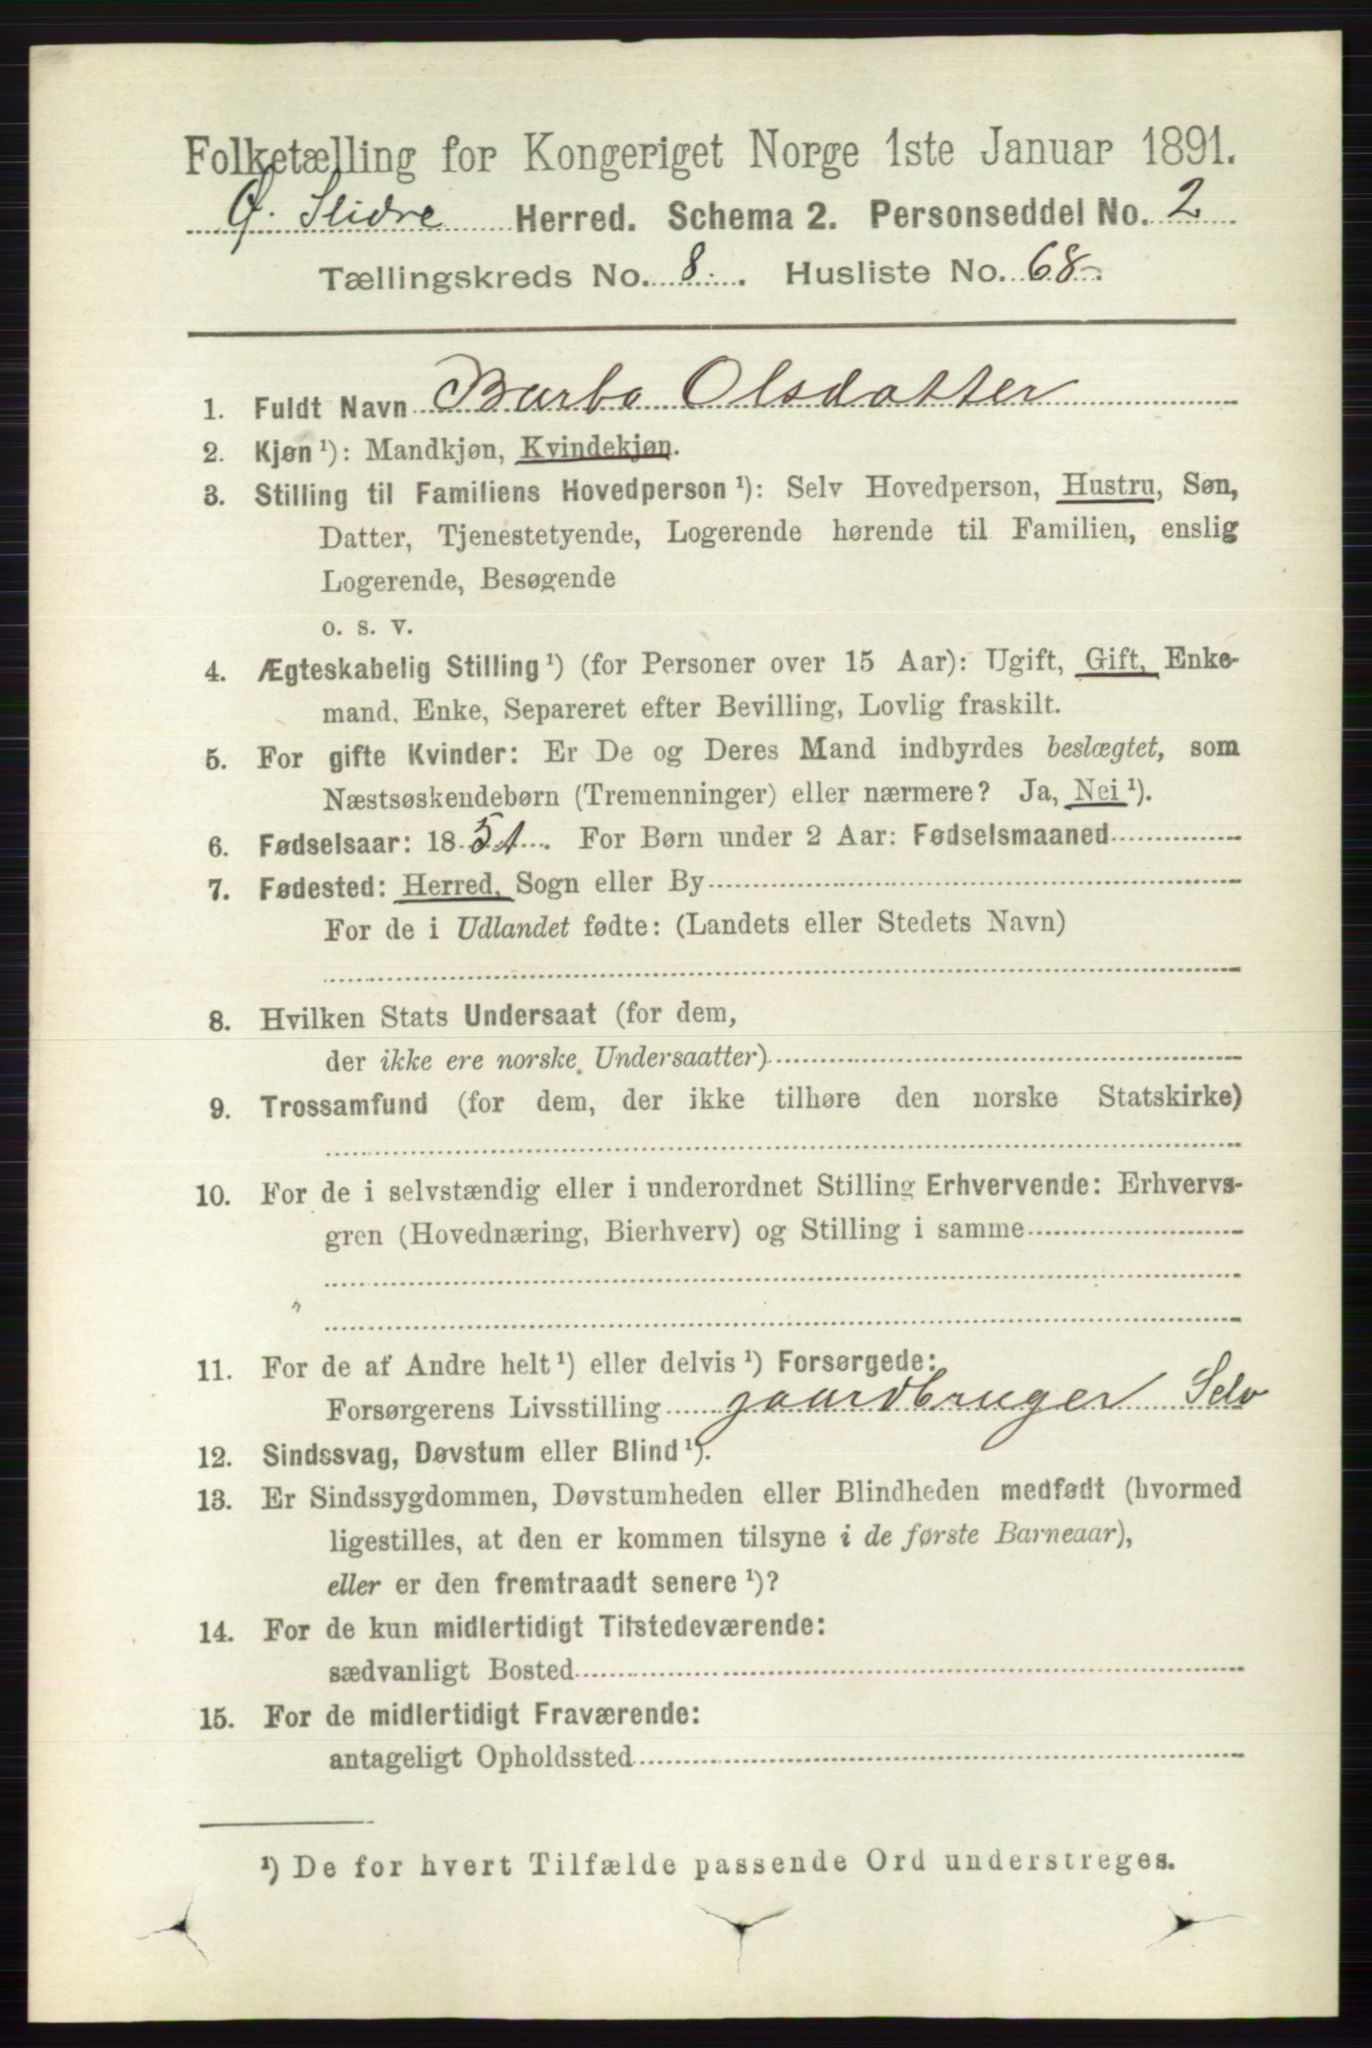 Folketælling for Kongeriget Norge 1ste Januar 1891.
Ø. Slidre Herred. Schema 2. Personseddel No. 2
Tællingskreds No. 8. Husliste No. 68.
1. Fuldt Navn Barbo Olsdatter
2. Kjøn ¹): Mandkjøn, Kvindekjøn.
3. Stilling til Familiens Hovedperson ¹): Selv Hovedperson, Hustru, Søn,
Datter, Tjenestetyende, Logerende hørende til Familien, enslig
Logerende, Besøgende
o. s. v.
4. Ægteskabelig Stilling ¹) (for Personer over 15 Aar): Ugift, Gift, Enke-
mand, Enke, Separeret efter Bevilling, Lovlig fraskilt.
5. For gifte Kvinder: Er De og Deres Mand indbyrdes beslægtet, som
Næstsøskendebørn (Tremenninger) eller nærmere? Ja, Nei ¹).
6. Fødselsaar: 1851. For Børn under 2 Aar: Fødselsmaaned
7. Fødested: Herred, Sogn eller By
For de i Udlandet fødte: (Landets eller Stedets Navn)
8. Hvilken Stats Undersaat (for dem,
der ikke ere norske Undersaatter)
9. Trossamfund (for dem, der ikke tilhøre den norske Statskirke)
10. For de i selvstændig eller i underordnet Stilling Erhvervende: Erhvervs-
gren (Hovednæring, Bierhverv) og Stilling i samme
11. For de af Andre helt ¹) eller delvis ¹) Forsørgede:
Forsørgerens Livsstilling gaardbruger Selv
12. Sindssvag, Døvstum eller Blind ¹).
13. Er Sindssygdommen, Døvstumheden eller Blindheden medfødt (hvormed
ligestilles, at den er kommen tilsyne i de første Barneaar),
eller er den fremtraadt senere ¹)?
14. For de kun midlertidigt Tilstedeværende:
sædvanligt Bosted
15. For de midlertidigt Fraværende:
antageligt Opholdssted
¹) De for hvert Tilfælde passende Ord understreges.